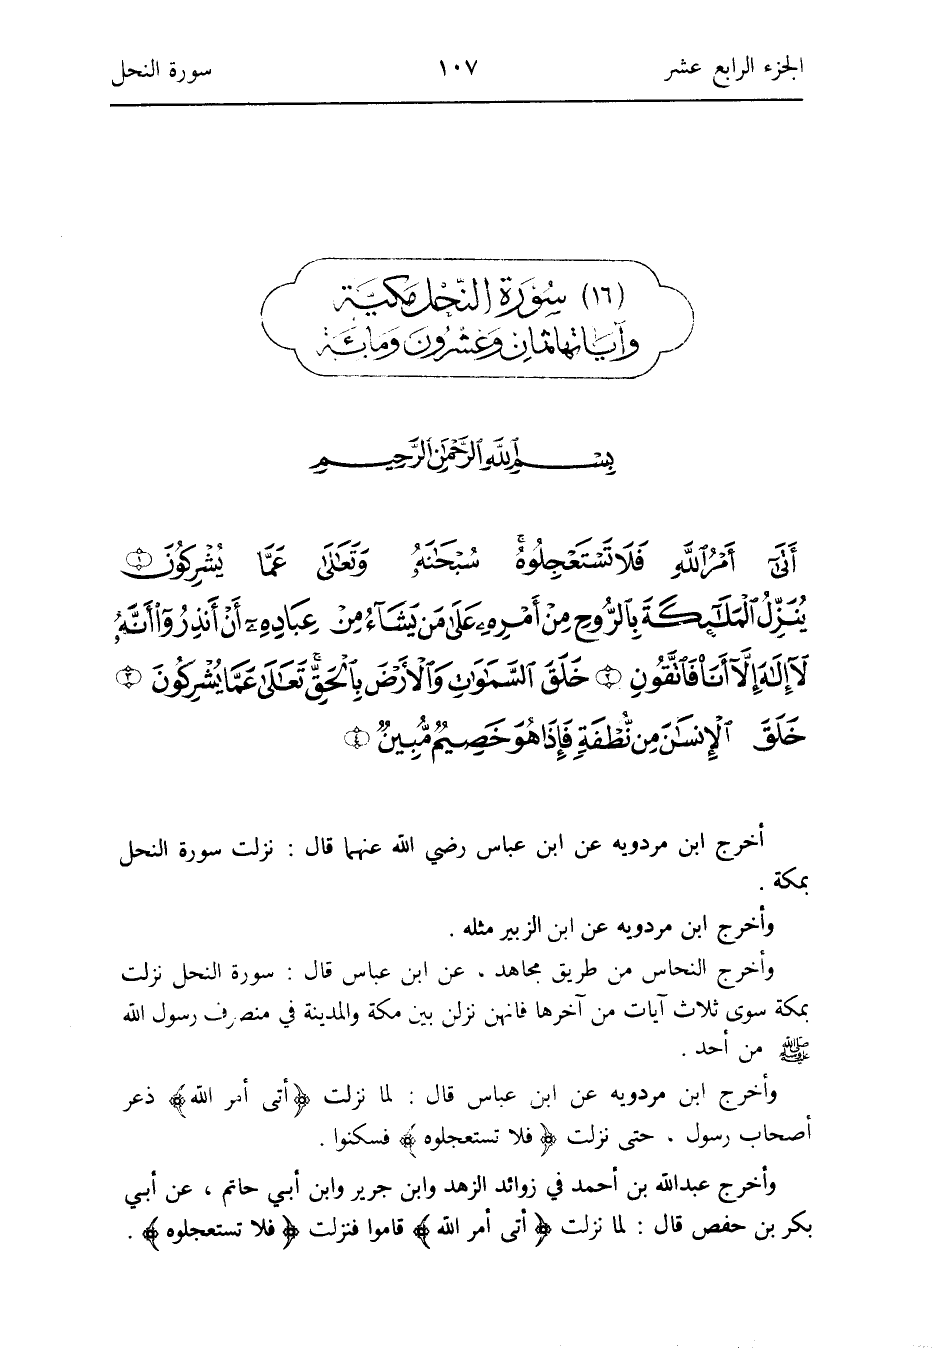 الجزء الرابع عشر ١٠٧ سورة النحل
(١٦) سُورَة النَّحْل مَكيَّة
وآيَاتها ثمَان وَعشْرُون وَمائَة
بِسْمِ ٱللَّهِ ٱلرَّحْمَٰنِ ٱلرَّحِيمِ
أَتَىٰٓ أَمْرُ ٱللَّهِ فَلَا تَسْتَعْجِلُوهُ ۚ سُبْحَٰنَهُۥ وَتَعَٰلَىٰ عَمَّا يُشْرِكُونَ ١
يُنَزِّلُ ٱلْمَلَٰٓئِكَةَ بِٱلرُّوحِ مِنْ أَمْرِهِۦ عَلَىٰ مَن يَشَآءُ مِنْ عِبَادِهِۦٓ أَنْ أَنذِرُوٓا۟ أَنَّهُۥ
لَآ إِلَٰهَ إِلَّآ أَنَا۠ فَٱتَّقُونِ ٢ خَلَقَ ٱلسَّمَٰوَٰتِ وَٱلْأَرْضَ بِٱلْحَقِّ ۚ تَعَٰلَىٰ عَمَّا يُشْرِكُونَ ٣
خَلَقَ ٱلْإِنسَٰنَ مِن نُّطْفَةٍ فَإِذَا هُوَ خَصِيمٌ مُّبِينٌ ٤
أخرج ابن مردويه عن ابن عباس رضي الله عنهما قال : نزلت سورة النحل
بمكة .
وأخرج ابن مردويه عن ابن الزبير مثله .
وأخرج النحاس من طريق مجاهد ، عن ابن عباس قال : سورة النحل نزلت
بمكة سوى ثلاث آيات من آخرها فانهن نزلن بين مكة والمدينة في منصرف رسول الله
ﷺ من أحد .
وأخرج ابن مردويه عن ابن عباس قال : لما نزلت ﴿أتى أمر الله﴾ ذعر
أصحاب رسول ، حتى نزلت ﴿ فلا تستعجلوه ﴾ فسكنوا .
وأخرج عبدالله بن أحمد في زوائد الزهد وابن جرير وابن أبي حاتم ، عن أبي
بكر بن حفص قال : لما نزلت ﴿ أتى أمر الله ﴾ قاموا فنزلت ﴿ فلا تستعجلوه ﴾ .